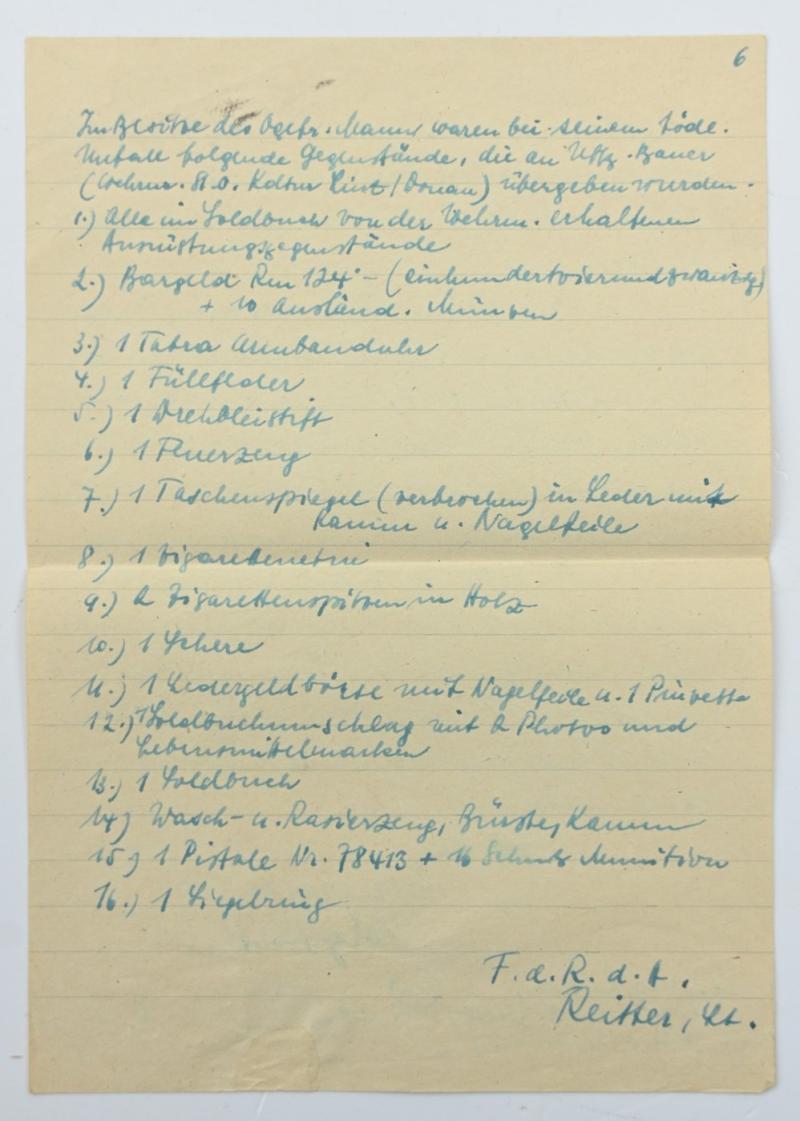 6
Im Besitze des Ogefr. Mann waren bei seinem Tode.
Unfall folgende Gegenstände, die an Uffz. Bauer
(Wehrm. St.O. Kdtur Linz / Donau) übergeben wurden.
1.) Alle im Soldbuch von der Wehrm. erhaltenen
Ausrüstungsgegenstände
2.) Bargeld Rm 124.- (einhundertvierundzwanzig)
+ 10 ausländ. Münzen
3.) 1 Tatra Armbanduhr
4.) 1 Füllfeder
5.) 1 Drehbleistift
6.) 1 Feuerzeug
7.) 1 Taschenspiegel (verbrochen) in Leder mit
Kamm u. Nagelfeile
8.) 1 Zigarettenetui
9.) 2 Zigarettenspitzen in Holz
10.) 1 Schere
11.) 1 Ledergeldbörse mit Nagelfeile u. 1 Pinvette
12.) 1 Soldbuchumschlag mit 2 Photos und
Lebensmittelmarken
13.) 1 Soldbuch
14) Wasch- u. Rasierzeug, Bürste, Kamm
15) 1 Pistole Nr. 78413 + 16 Schuß Munition
16.) 1 Siegelring
F.d.R.d.A.
Reitter, Lt.